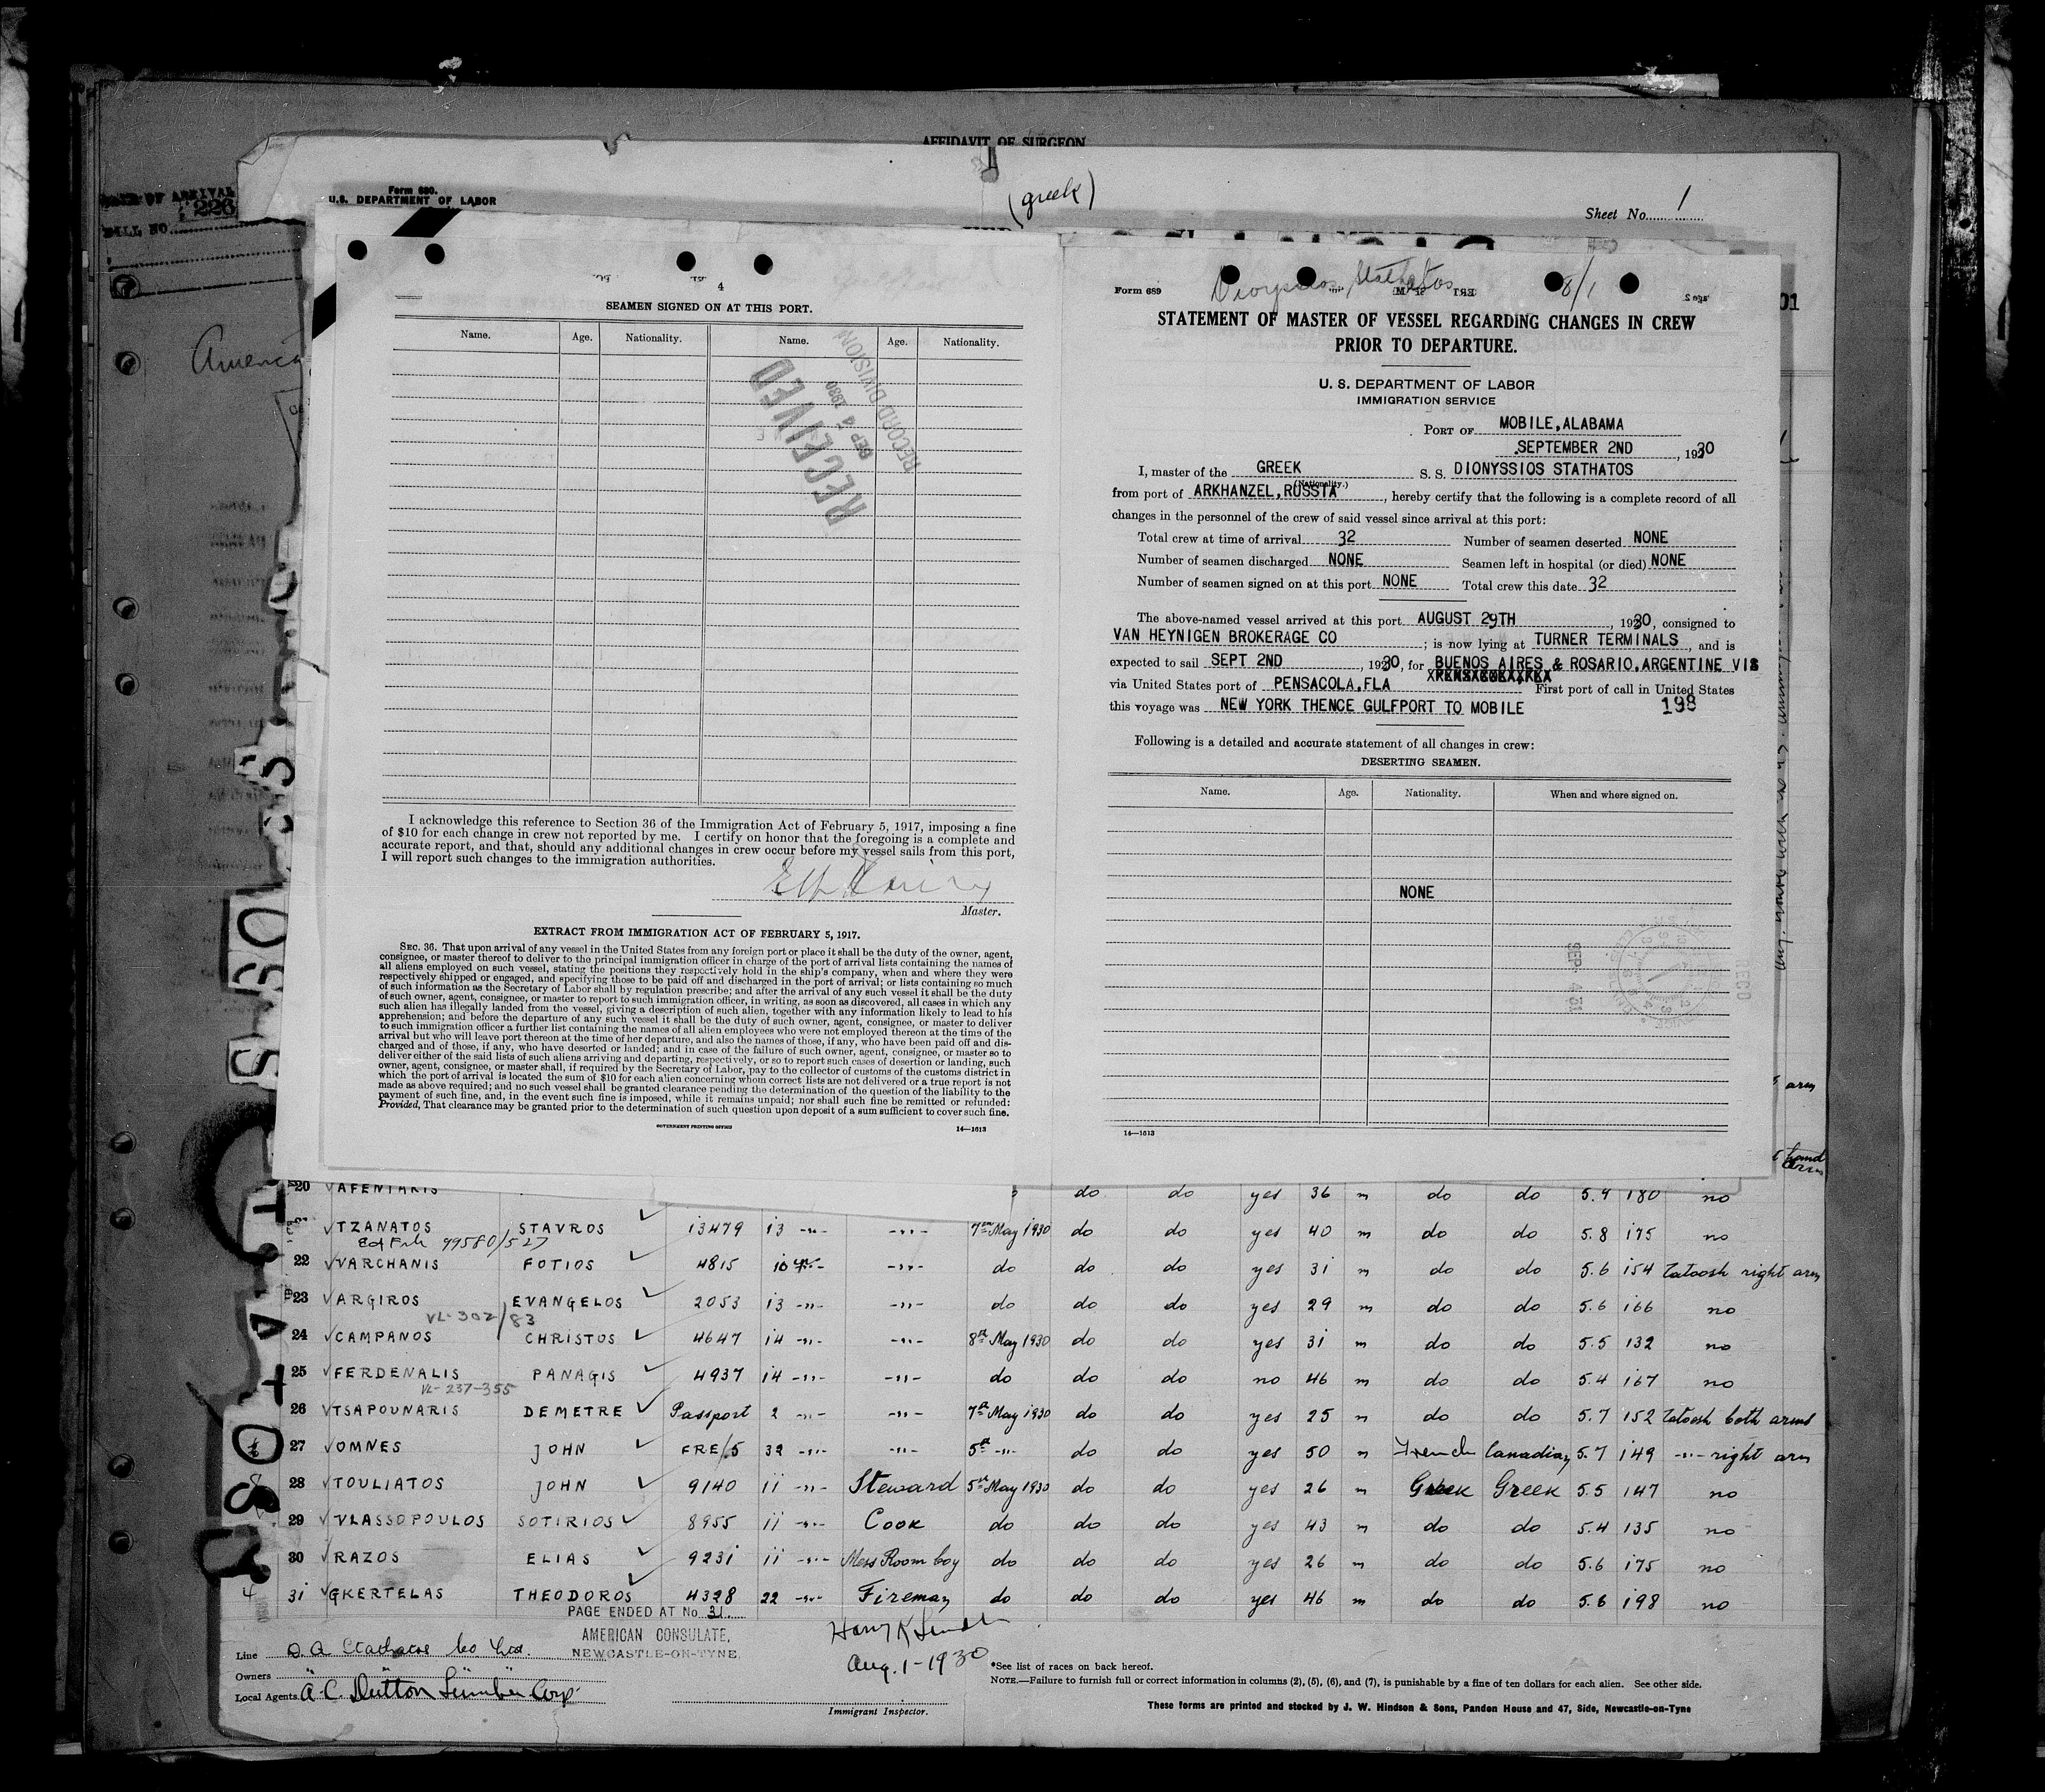 AFFIDAVIT OF SURGEON
DATE OF ARRIVAL
BILL NO.
Form 680.
U.S. DEPARTMENT OF LABOR
(greek)
Sheet No. 1
America
4
SEAMEN SIGNED ON AT THIS PORT.
Name. Age. Nationality. Name. Age. Nationality.
RECEIVED
SEP 4 1930
RECORD DIVISION
I acknowledge this reference to Section 36 of the Immigration Act of February 5, 1917, imposing a fine
of $10 for each change in crew not reported by me. I certify on honor that the foregoing is a complete and
accurate report, and that, should any additional changes in crew occur before my vessel sails from this port,
I will report such changes to the immigration authorities.
Master.
EXTRACT FROM IMMIGRATION ACT OF FEBRUARY 5, 1917.
SEC. 36. That upon arrival of any vessel in the United States from any foreign port or place it shall be the duty of the owner, agent,
consignee, or master thereof to deliver to the principal immigration officer in charge of the port of arrival lists containing the names of
all aliens employed on such vessel, stating the positions they respectively hold in the ship's company, when and where they were
respectively shipped or engaged, and specifying those to be paid off and discharged in the port of arrival; or lists containing so much
of such information as the Secretary of Labor shall by regulation prescribe; and after the arrival of any such vessel it shall be the duty
of such owner, agent, consignee, or master to report to such immigration officer, in writing, as soon as discovered, all cases in which any
such alien has illegally landed from the vessel, giving a description of such alien, together with any information likely to lead to his
apprehension; and before the departure of any such vessel it shall be the duty of such owner, agent, consignee, or master to deliver
to such immigration officer a further list containing the names of all alien employees who were not employed thereon at the time of the
arrival but who will leave port thereon at the time of her departure, and also the names of those, if any, who have been paid off and dis-
charged and of those, if any, who have deserted or landed; and in case of the failure of such owner, agent, consignee, or master so to
deliver either of the said lists of such aliens arriving and departing, respectively, or so to report such cases of desertion or landing, such
owner, agent, consignee, or master shall, if required by the Secretary of Labor, pay to the collector of customs of the customs district in
which the port of arrival is located the sum of $10 for each alien concerning whom correct lists are not delivered or a true report is not
made as above required; and no such vessel shall be granted clearance pending the determination of the question of the liability to the
payment of such fine, and, in the event such fine is imposed, while it remains unpaid; nor shall such fine be remitted or refunded:
Provided, That clearance may be granted prior to the determination of such question upon deposit of a sum sufficient to cover such fine.
GOVERNMENT PRINTING OFFICE 14—1613
Form 689
Dionyssios Stathatos 8/1
STATEMENT OF MASTER OF VESSEL REGARDING CHANGES IN CREW
PRIOR TO DEPARTURE.
U. S. DEPARTMENT OF LABOR
IMMIGRATION SERVICE
PORT OF MOBILE, ALABAMA
SEPTEMBER 2ND, 1930
I, master of the GREEK S. S. DIONYSSIOS STATHATOS
(Nationality.)
from port of ARKHANZEL, RUSSIA, hereby certify that the following is a complete record of all
changes in the personnel of the crew of said vessel since arrival at this port:
Total crew at time of arrival 32 Number of seamen deserted NONE
Number of seamen discharged NONE Seamen left in hospital (or died) NONE
Number of seamen signed on at this port NONE Total crew this date 32
The above-named vessel arrived at this port AUGUST 29TH, 1930, consigned to
VAN HEYNIGEN BROKERAGE CO; is now lying at TURNER TERMINALS, and is
expected to sail SEPT 2ND, 1930, for BUENOS AIRES & ROSARIO, ARGENTINE VIS
via United States port of PENSACOLA, FLA First port of call in United States
this voyage was NEW YORK THENCE GULFPORT TO MOBILE 198
Following is a detailed and accurate statement of all changes in crew:
DESERTING SEAMEN.
Name. Age. Nationality. When and where signed on.
NONE
14—1613
20 AFENTAKIS do do yes 36 m do do 5.9 180 no
TZANATOS STAVROS 13479 13 -"- -"- 7th May 1930 do do yes 40 m do do 5.8 175 no
99580/527
22 VARCHANIS FOTIOS 4815 -"- do do do yes 31 m do do 5.6 154 Tatoosh right arm
23 ARGIROS EVANGELOS 2053 13 -"- -"- do do do yes 29 m do do 5.6 166 no
VL-302/83
24 CAMPANOS CHRISTOS 4647 14 -"- -"- 8th May 1930 do do yes 31 m do do 5.5 132 no
25 FERDENALIS PANAGIS 4937 14 -"- -"- do do do no 46 m do do 5.4 167 no
VL-237-355
26 TSAPOUNARIS DEMETRE Passport 2 -"- -"- 7th May 1930 do do yes 25 m do do 5.7 152 Tatoosh both arms
27 OMNES JOHN FRE/5 32 -"- -"- 5th -"- do do yes 50 m French Canadian 5.7 149 -"- right arm
28 TOULIATOS JOHN 9140 11 -"- Steward 5th May 1930 do do yes 26 m Greek Greek 5.5 147 no
29 VLASSOPOULOS SOTIRIOS 8955 11 -"- Cook do do do yes 43 m do do 5.4 135 no
30 RAZOS ELIAS 9231 11 -"- Mess Room boy do do do yes 26 m do do 5.6 175 no
31 GKERTELAS THEODOROS 4328 22 -"- Fireman do do do yes 46 m do do 5.6 198 no
PAGE ENDED AT No. 31
AMERICAN CONSULATE,
NEWCASTLE-ON-TYNE.
Aug. 1-1930
Line
Owners
Local Agents A.C. Dutton Lumber Corp.
Immigrant Inspector.
*See list of races on back hereof.
NOTE.—Failure to furnish full or correct information in columns (2), (5), (6), and (7), is punishable by a fine of ten dollars for each alien. See other side.
These forms are printed and stocked by J. W. Hindson & Sons, Pandon House and 47, Side, Newcastle-on-Tyne